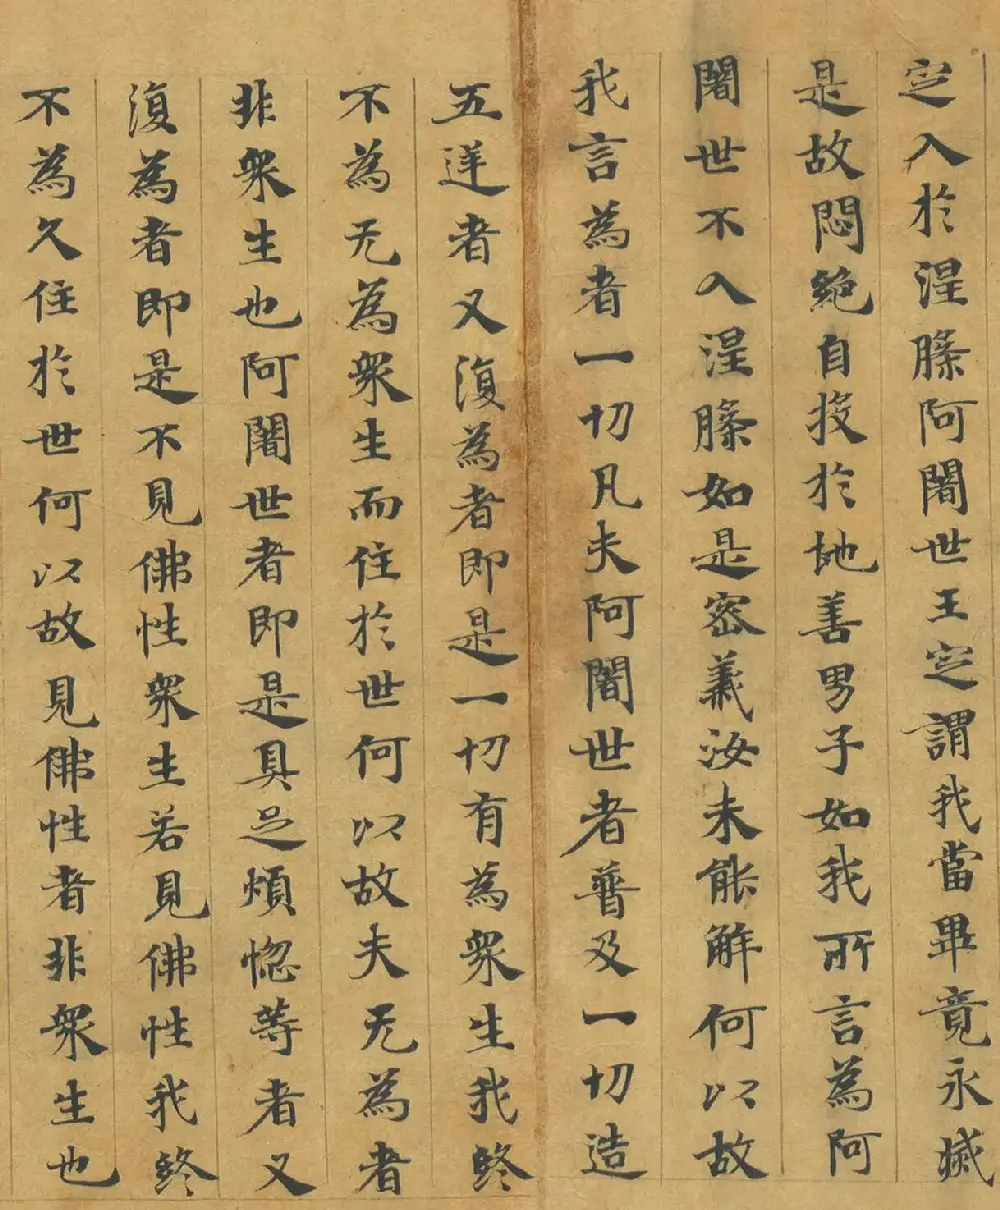 定入於涅槃阿闍世王定謂我當畢竟永滅
是故悶絕自投於地善男子如我所言為阿
闍世不入涅槃如是密義汝未能解何以故
我言為者一切凡夫阿闍世者普及一切造
五逆者又復為者即是一切有為眾生我終
不為无為眾生而住於世何以故夫无為者
非眾生也阿闍世者即是具足煩惱等者又
復為者即是不見佛性眾生若見佛性我終
不為久住於世何以故見佛性者非眾生也